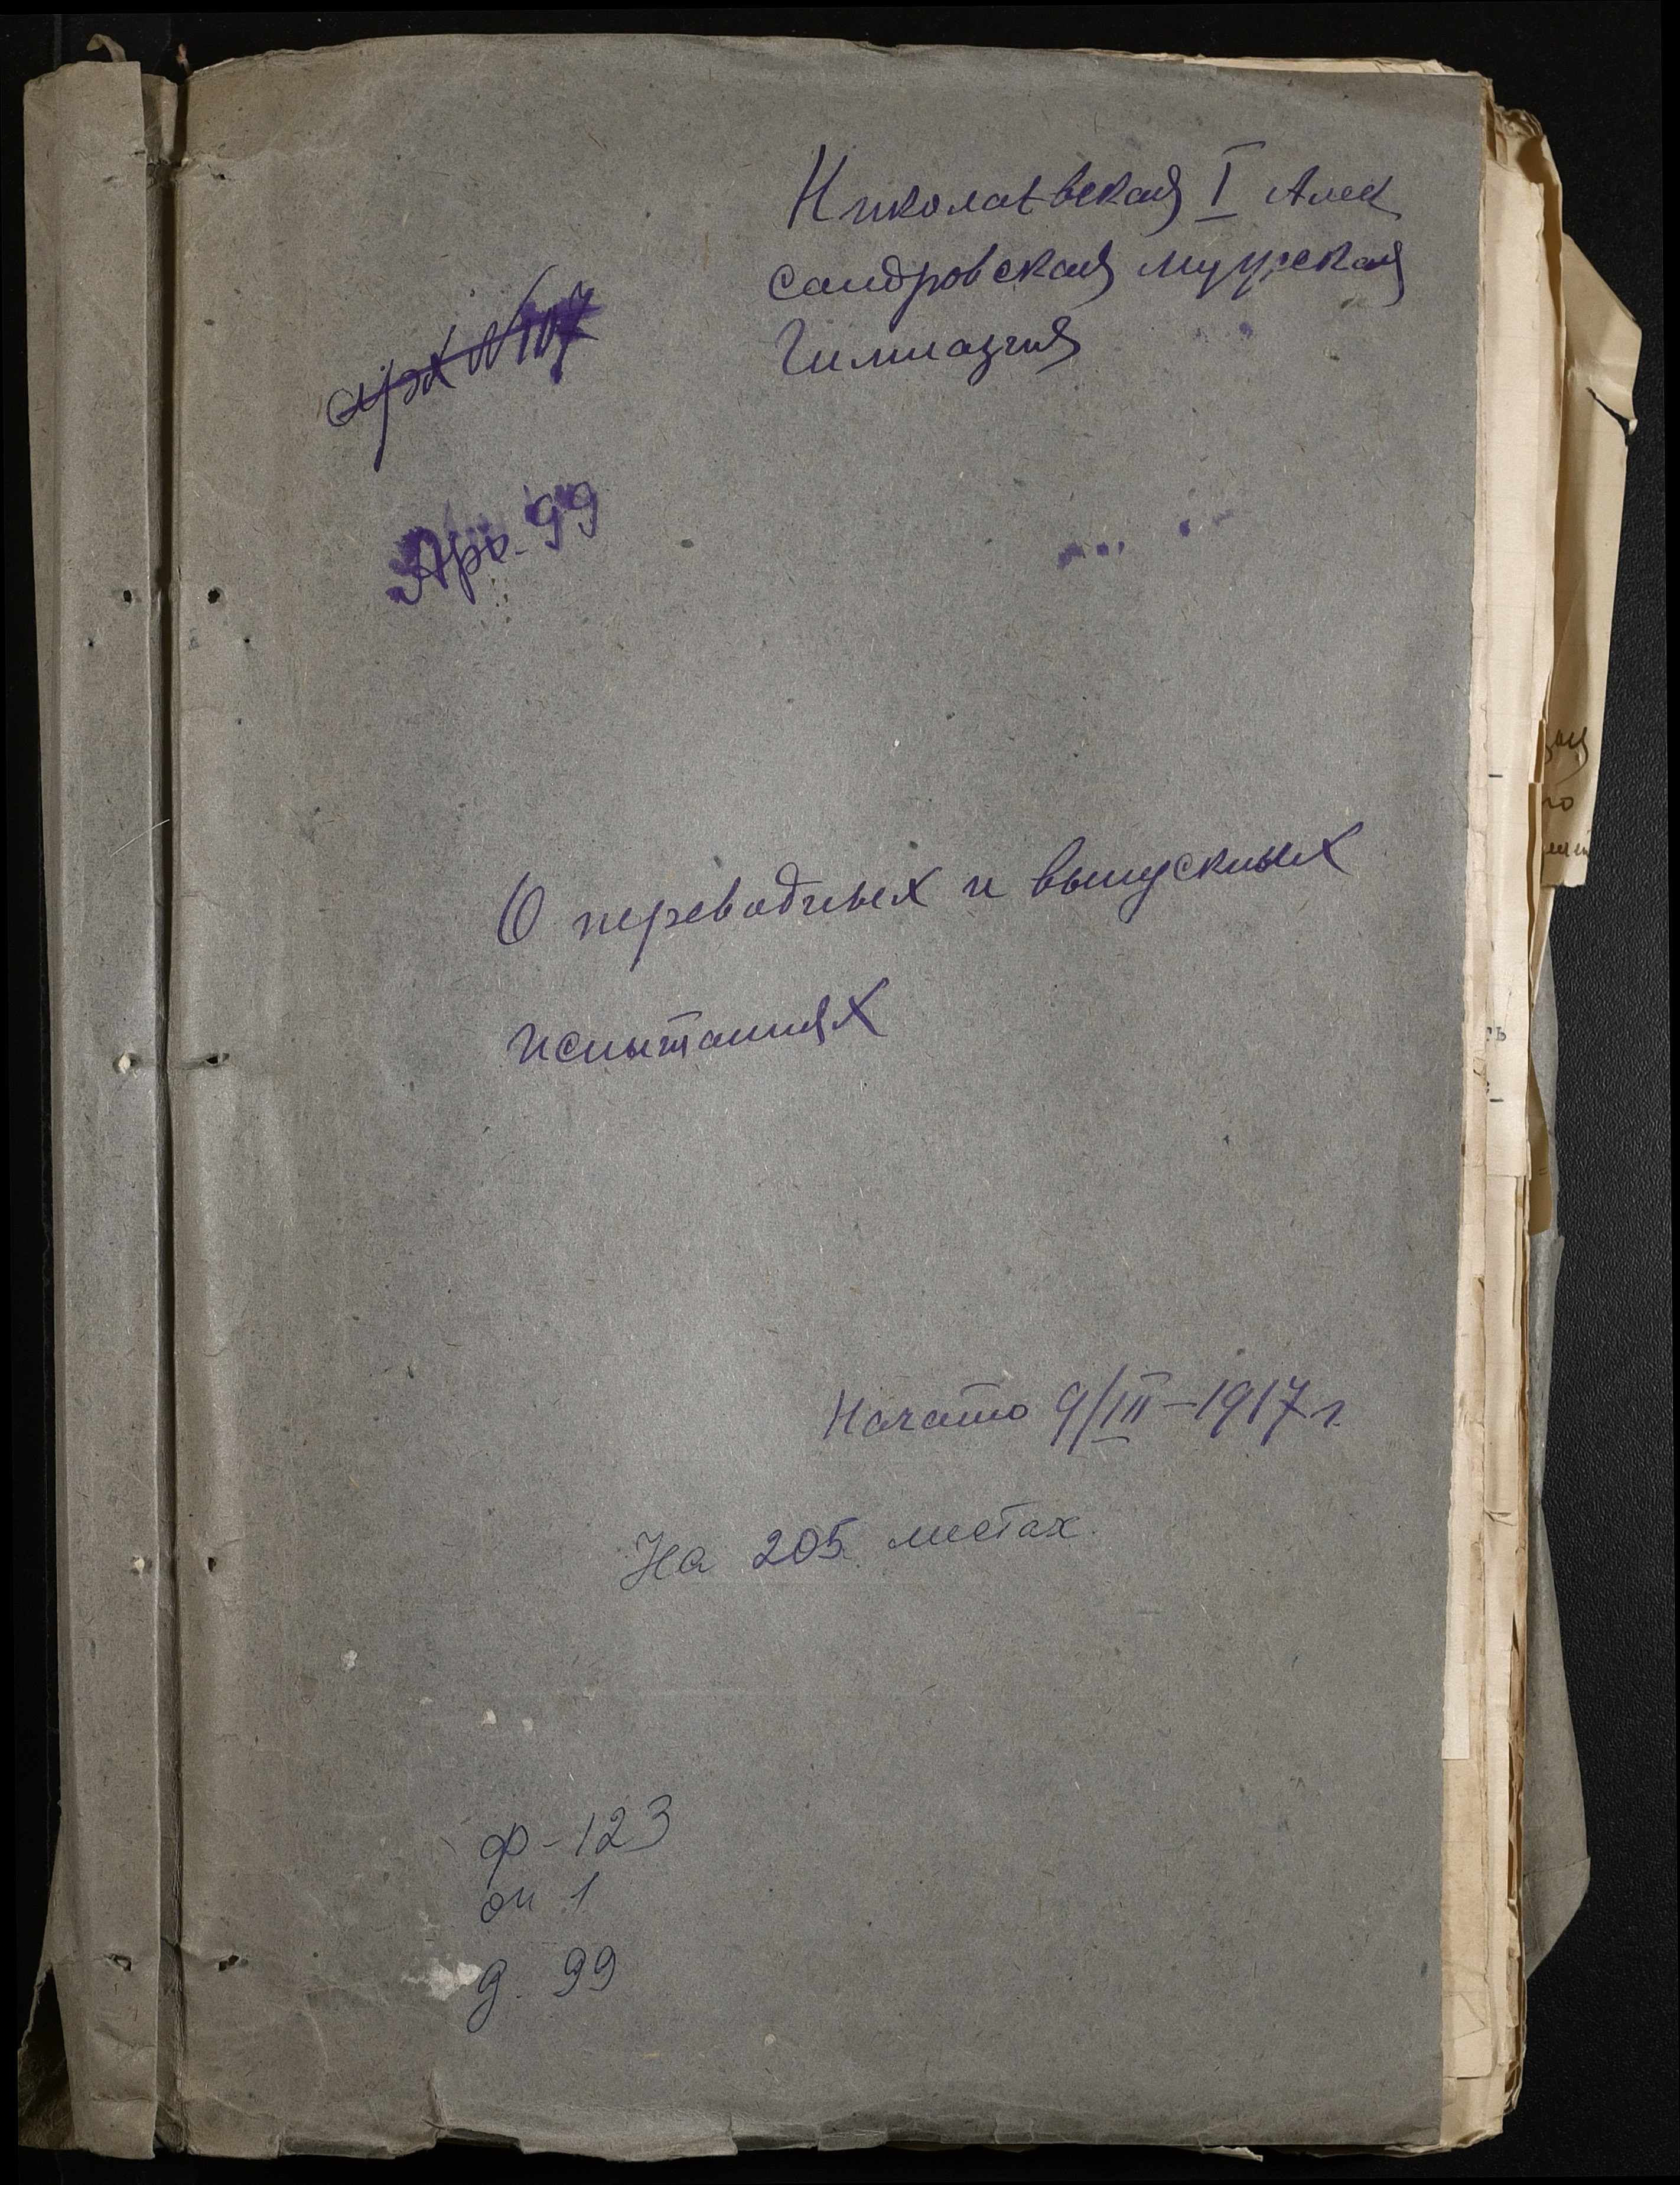 Николаевская I Алек
сандровская мужская
Гимназия
арх №107
Арх. 99
О переводных и выпускных
испытаниях
Начато 9/III-1917 г.
На 205 листах.
ф-123
оп 1
д. 99